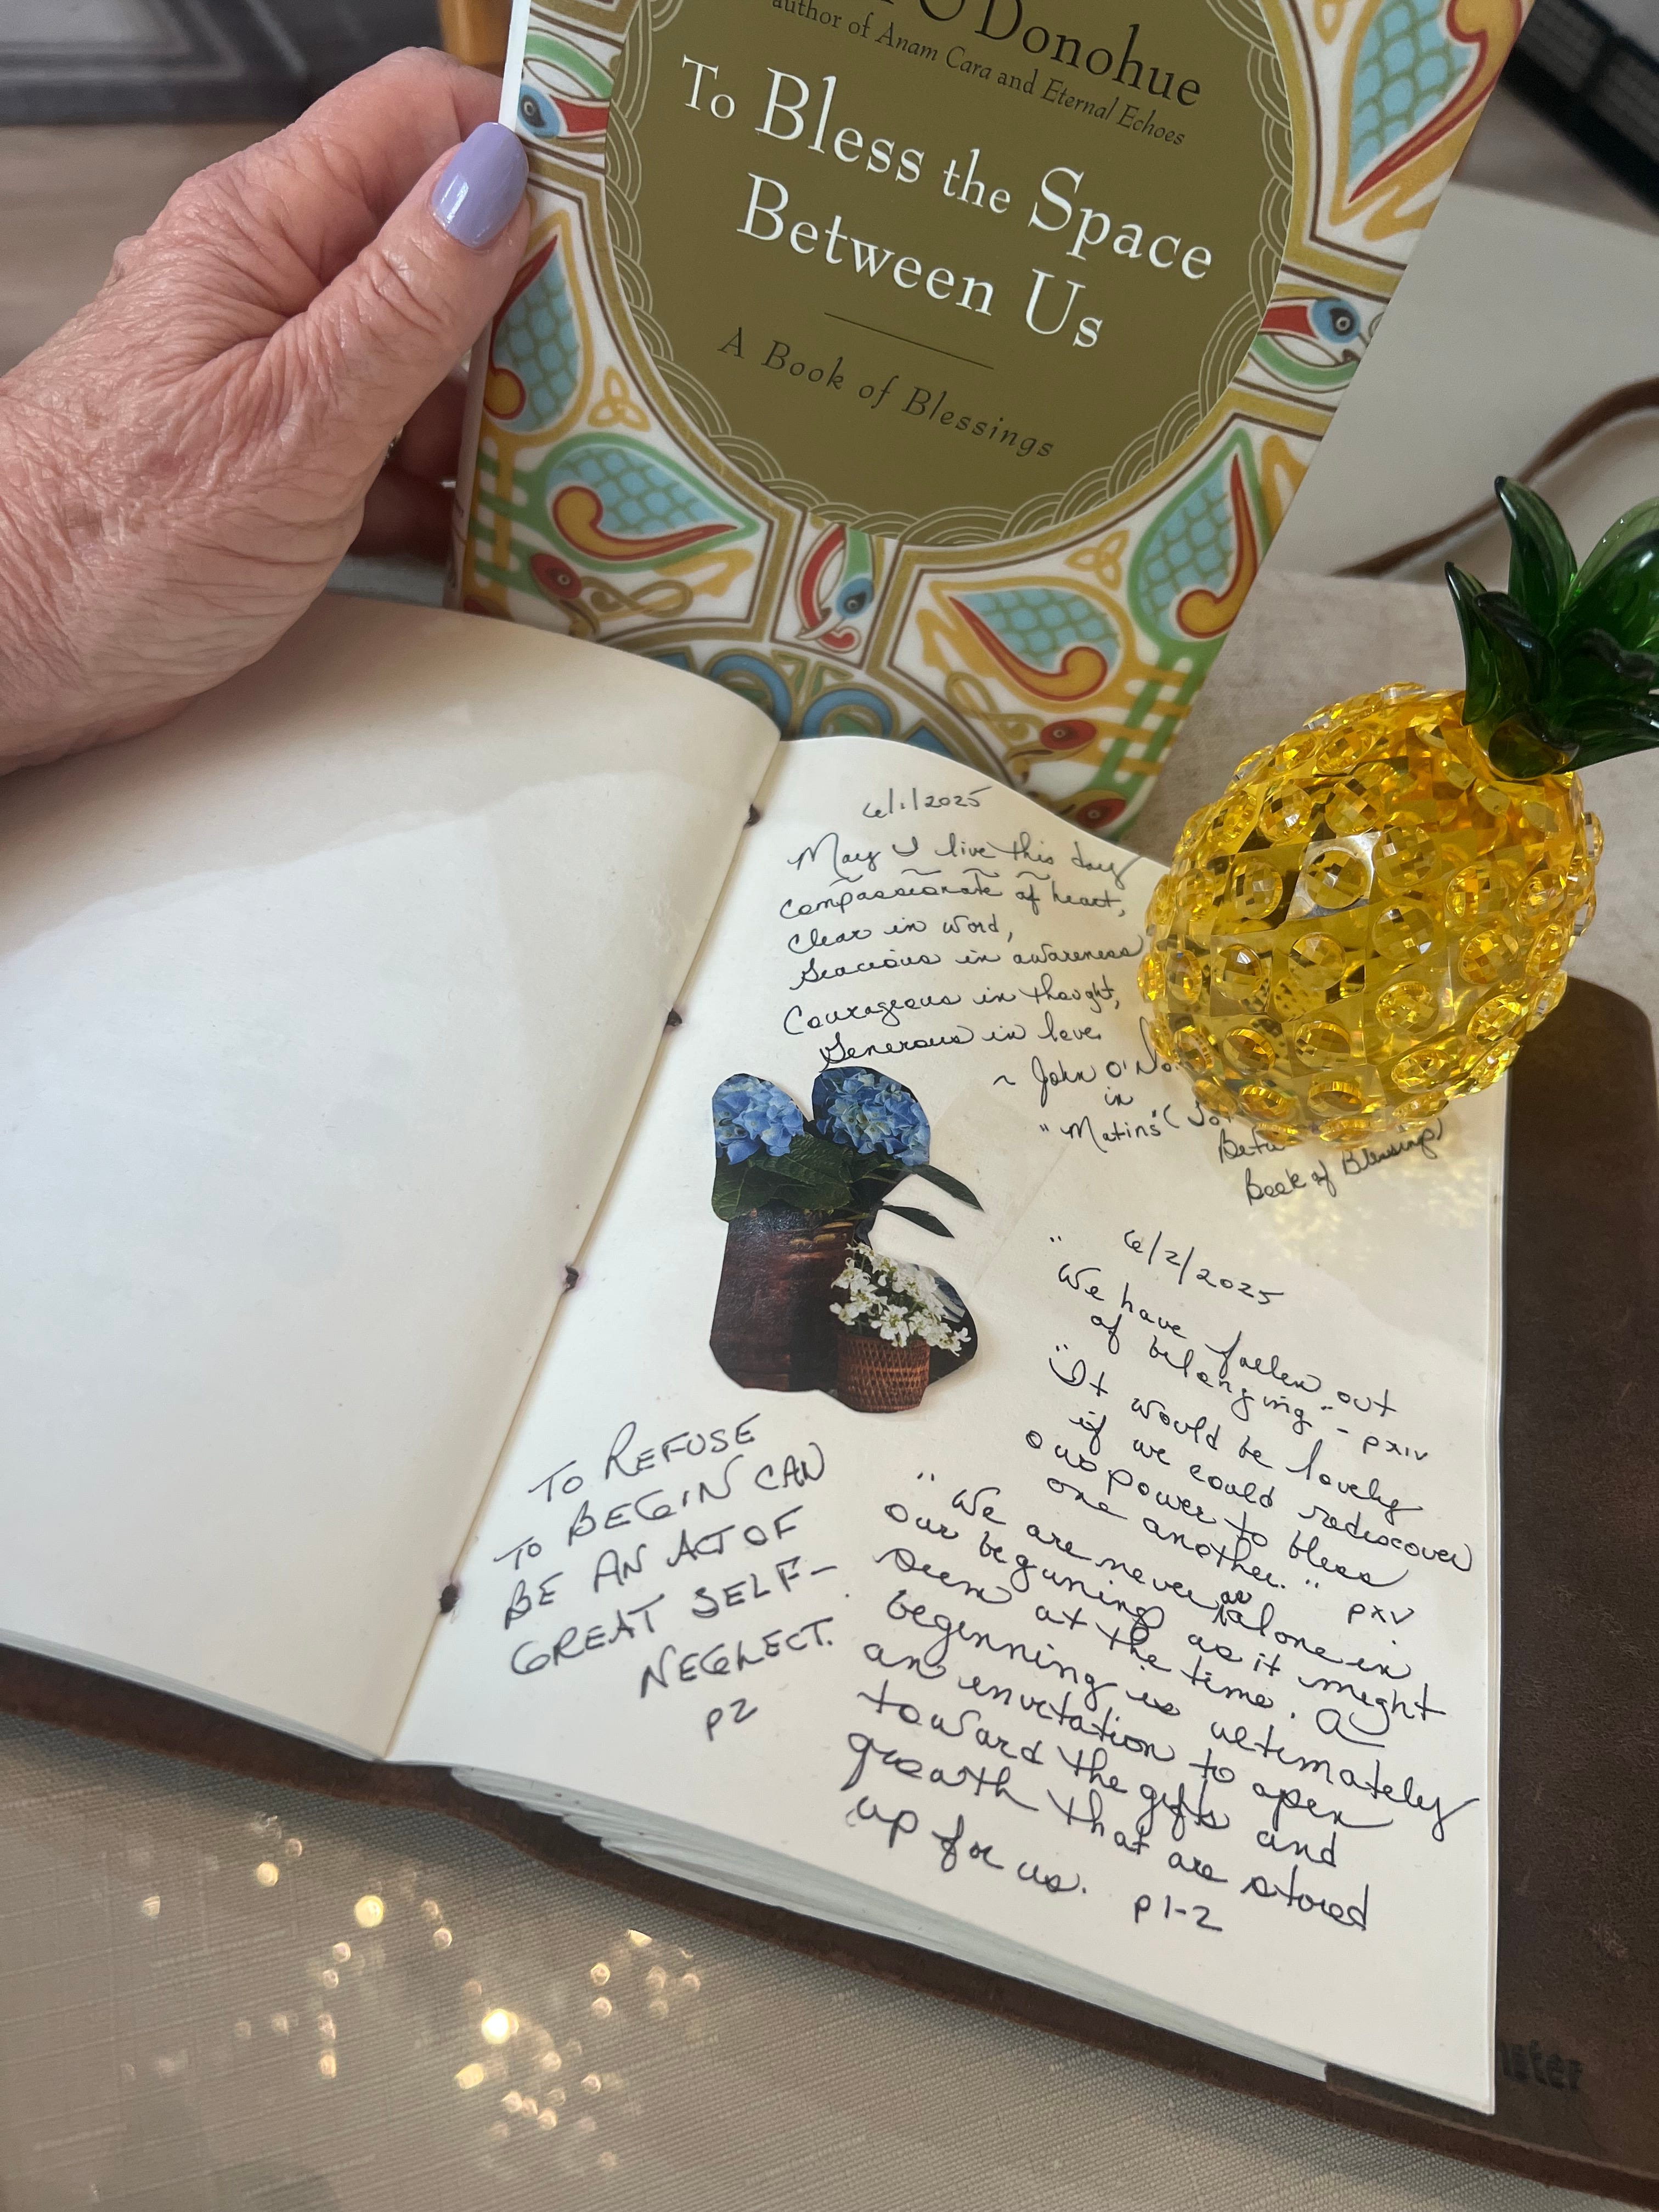 O'Donohue
author of Anam Cara and Eternal Echoes
To Bless the Space
Between Us
A Book of Blessings
6/1/2025
May I live this day
compassionate of heart,
Clear in word,
Gracious in awareness
Courageous in thought,
Generous in love.
~ John O'Do
in
"Matins" (
Betw
Book of Blessings)
6/2/2025
"We have fallen out
of belonging" - pxiv
"It would be lovely
if we could rediscover
our power to bless
one another." pxv
"We are never as alone in
our beginning as it might
seem at the time. A
beginning is ultimately
an invitation to open
toward the gifts and
growth that are stored
up for us. p 1-2
TO REFUSE
TO BEGIN CAN
BE AN ACT OF
GREAT SELF-
NEGLECT.
p2